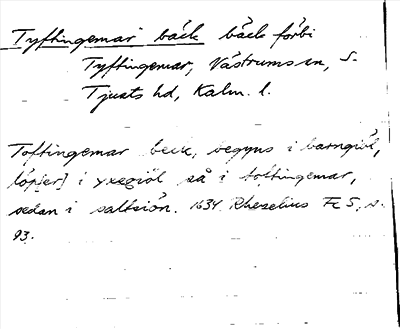 Tyftingemar bäck bäck förbi
Tyftingemar, Västrums sn, S.
Tjusts hd, Kalm. l.
Toftingemar beck, begyns i barngiöl,
löp[er] i yxegiöl så i toftingemar,
sedan i saltsiön. 1634 Rhezelius Fc 5, s.
93.